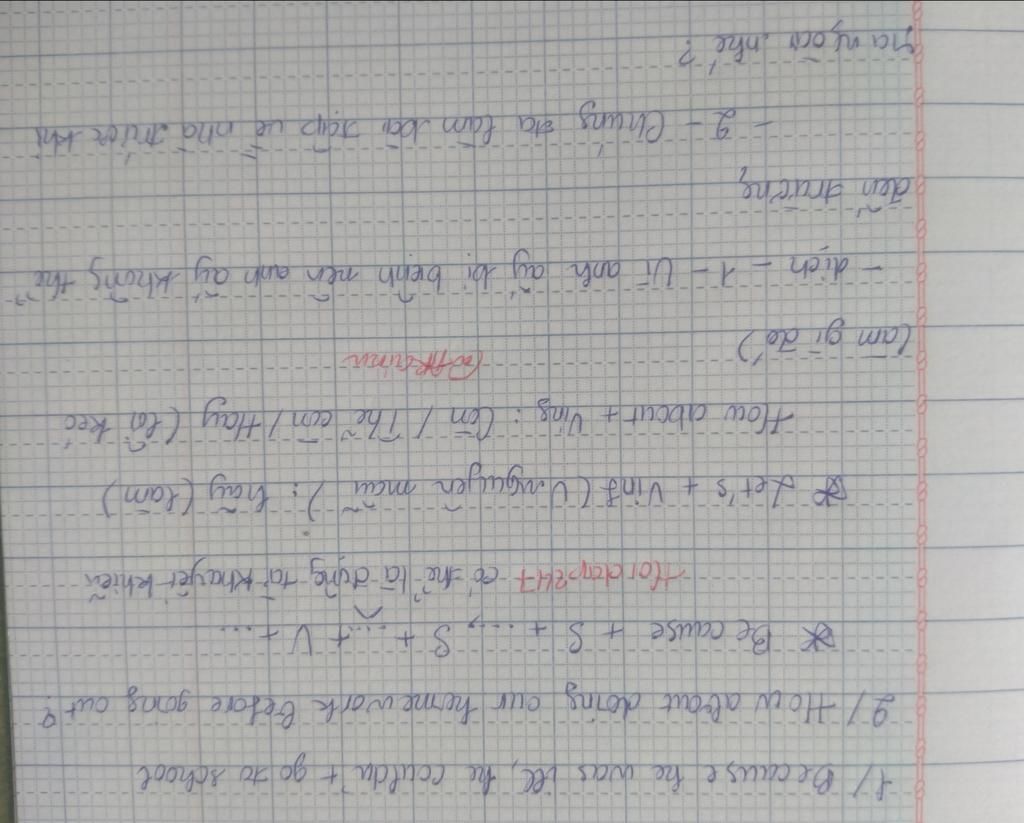 1/ Because he was ill, he couldn't go to school
2/ How about doing our homework before going out?
* Because + S + ..., S + ... + V + ...
Hoidap247 có thể là động từ khuyết khiến
* Let's + Vinf (V nguyên mẫu): hãy (làm)
How about + Ving: Còn / Thế còn / Hay (là kéo
làm gì đó)
- dịch - 1 - Vì anh ấy bị bệnh nên anh ấy không thể
đến trường
- 2 - Chúng ta làm bài tập về nhà trước khi
ra ngoài nhé?